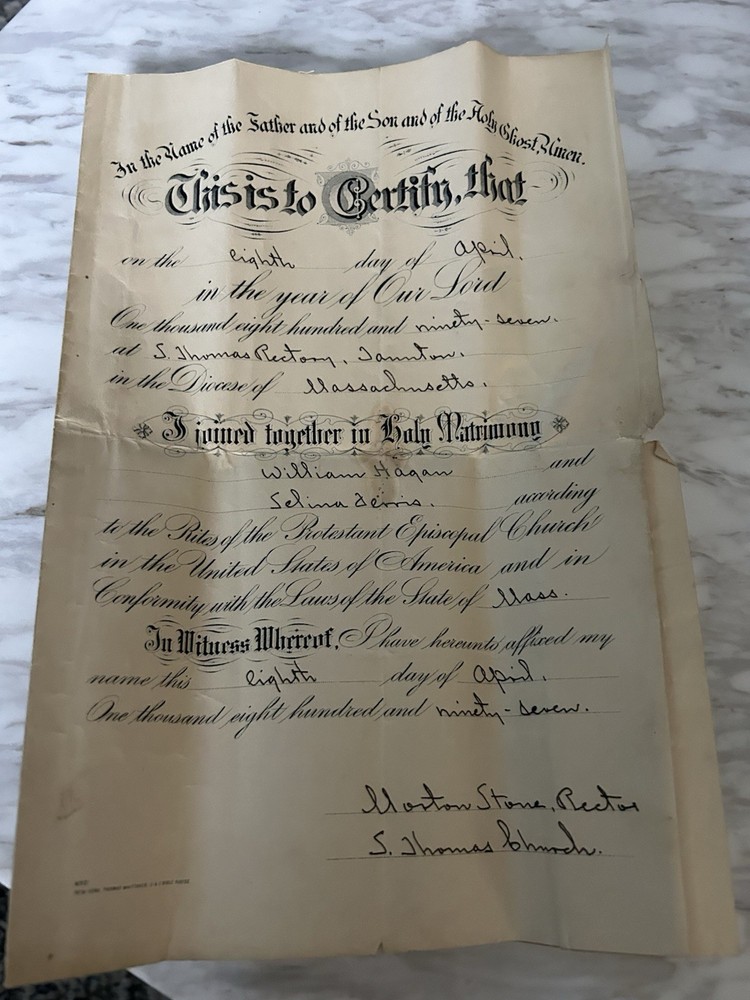 In the Name of the Father and of the Son and of the Holy Ghost, Amen.
This is to Certify, that
on the eighth day of April.
in the year of Our Lord
One thousand eight hundred and ninety-seven.
at S. Thomas Rectory, Taunton.
in the Diocese of Massachusetts.
I joined together in Holy Matrimony
William Hagan and
Selina Ferris. according
to the Rites of the Protestant Episcopal Church
in the United States of America and in
Conformity with the Laws of the State of Mass.
In Witness Whereof, I have hereunto affixed my
name this eighth day of April.
One thousand eight hundred and ninety-seven.
Morton Stone, Rector
S. Thomas Church.
NEW YORK, THOMAS WHITTAKER, 2 & 3 BIBLE HOUSE